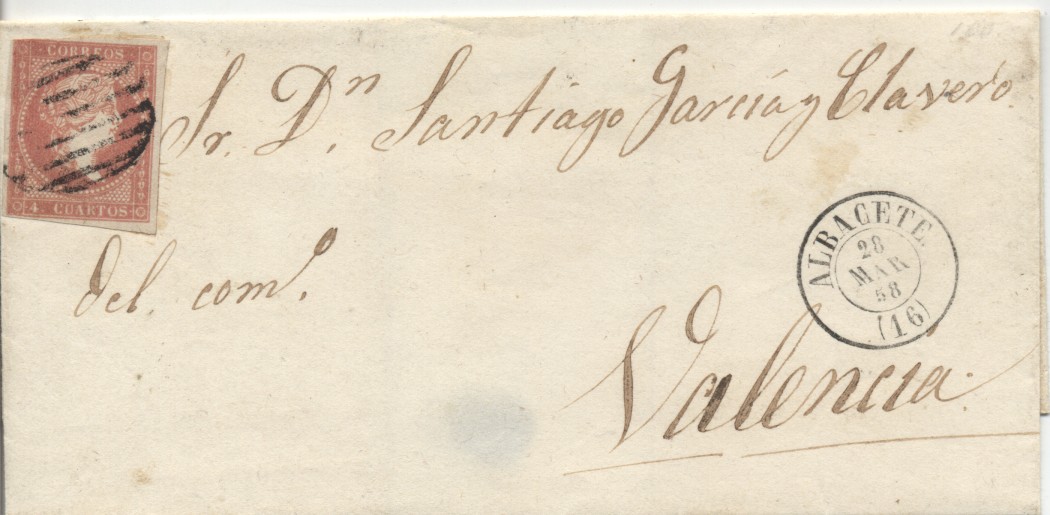 CORREOS
4. CUARTOS
Sr. Dⁿ. Santiago García y Clavero
del. comº.
ALBACETE
28
MAR
58
(16)
Valencia.